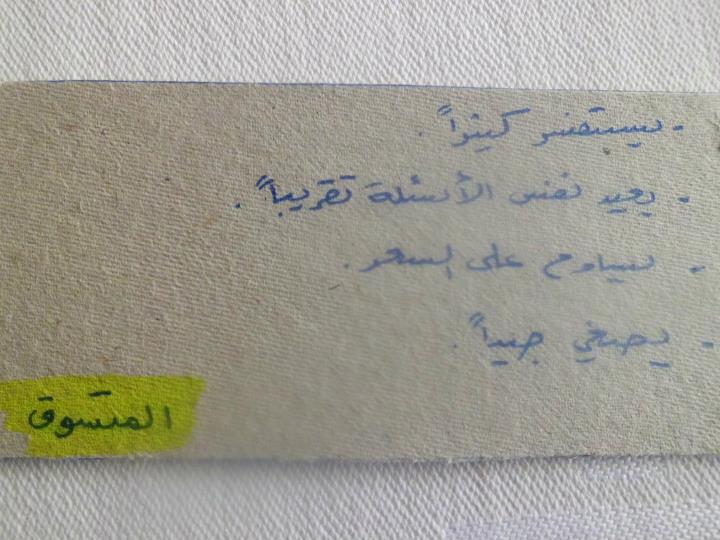 - يستفسر كثيراً .
- يعيد نفس الأسئلة تقريباً .
- يساوم على السعر .
- يصغي جيداً .
المتسوق